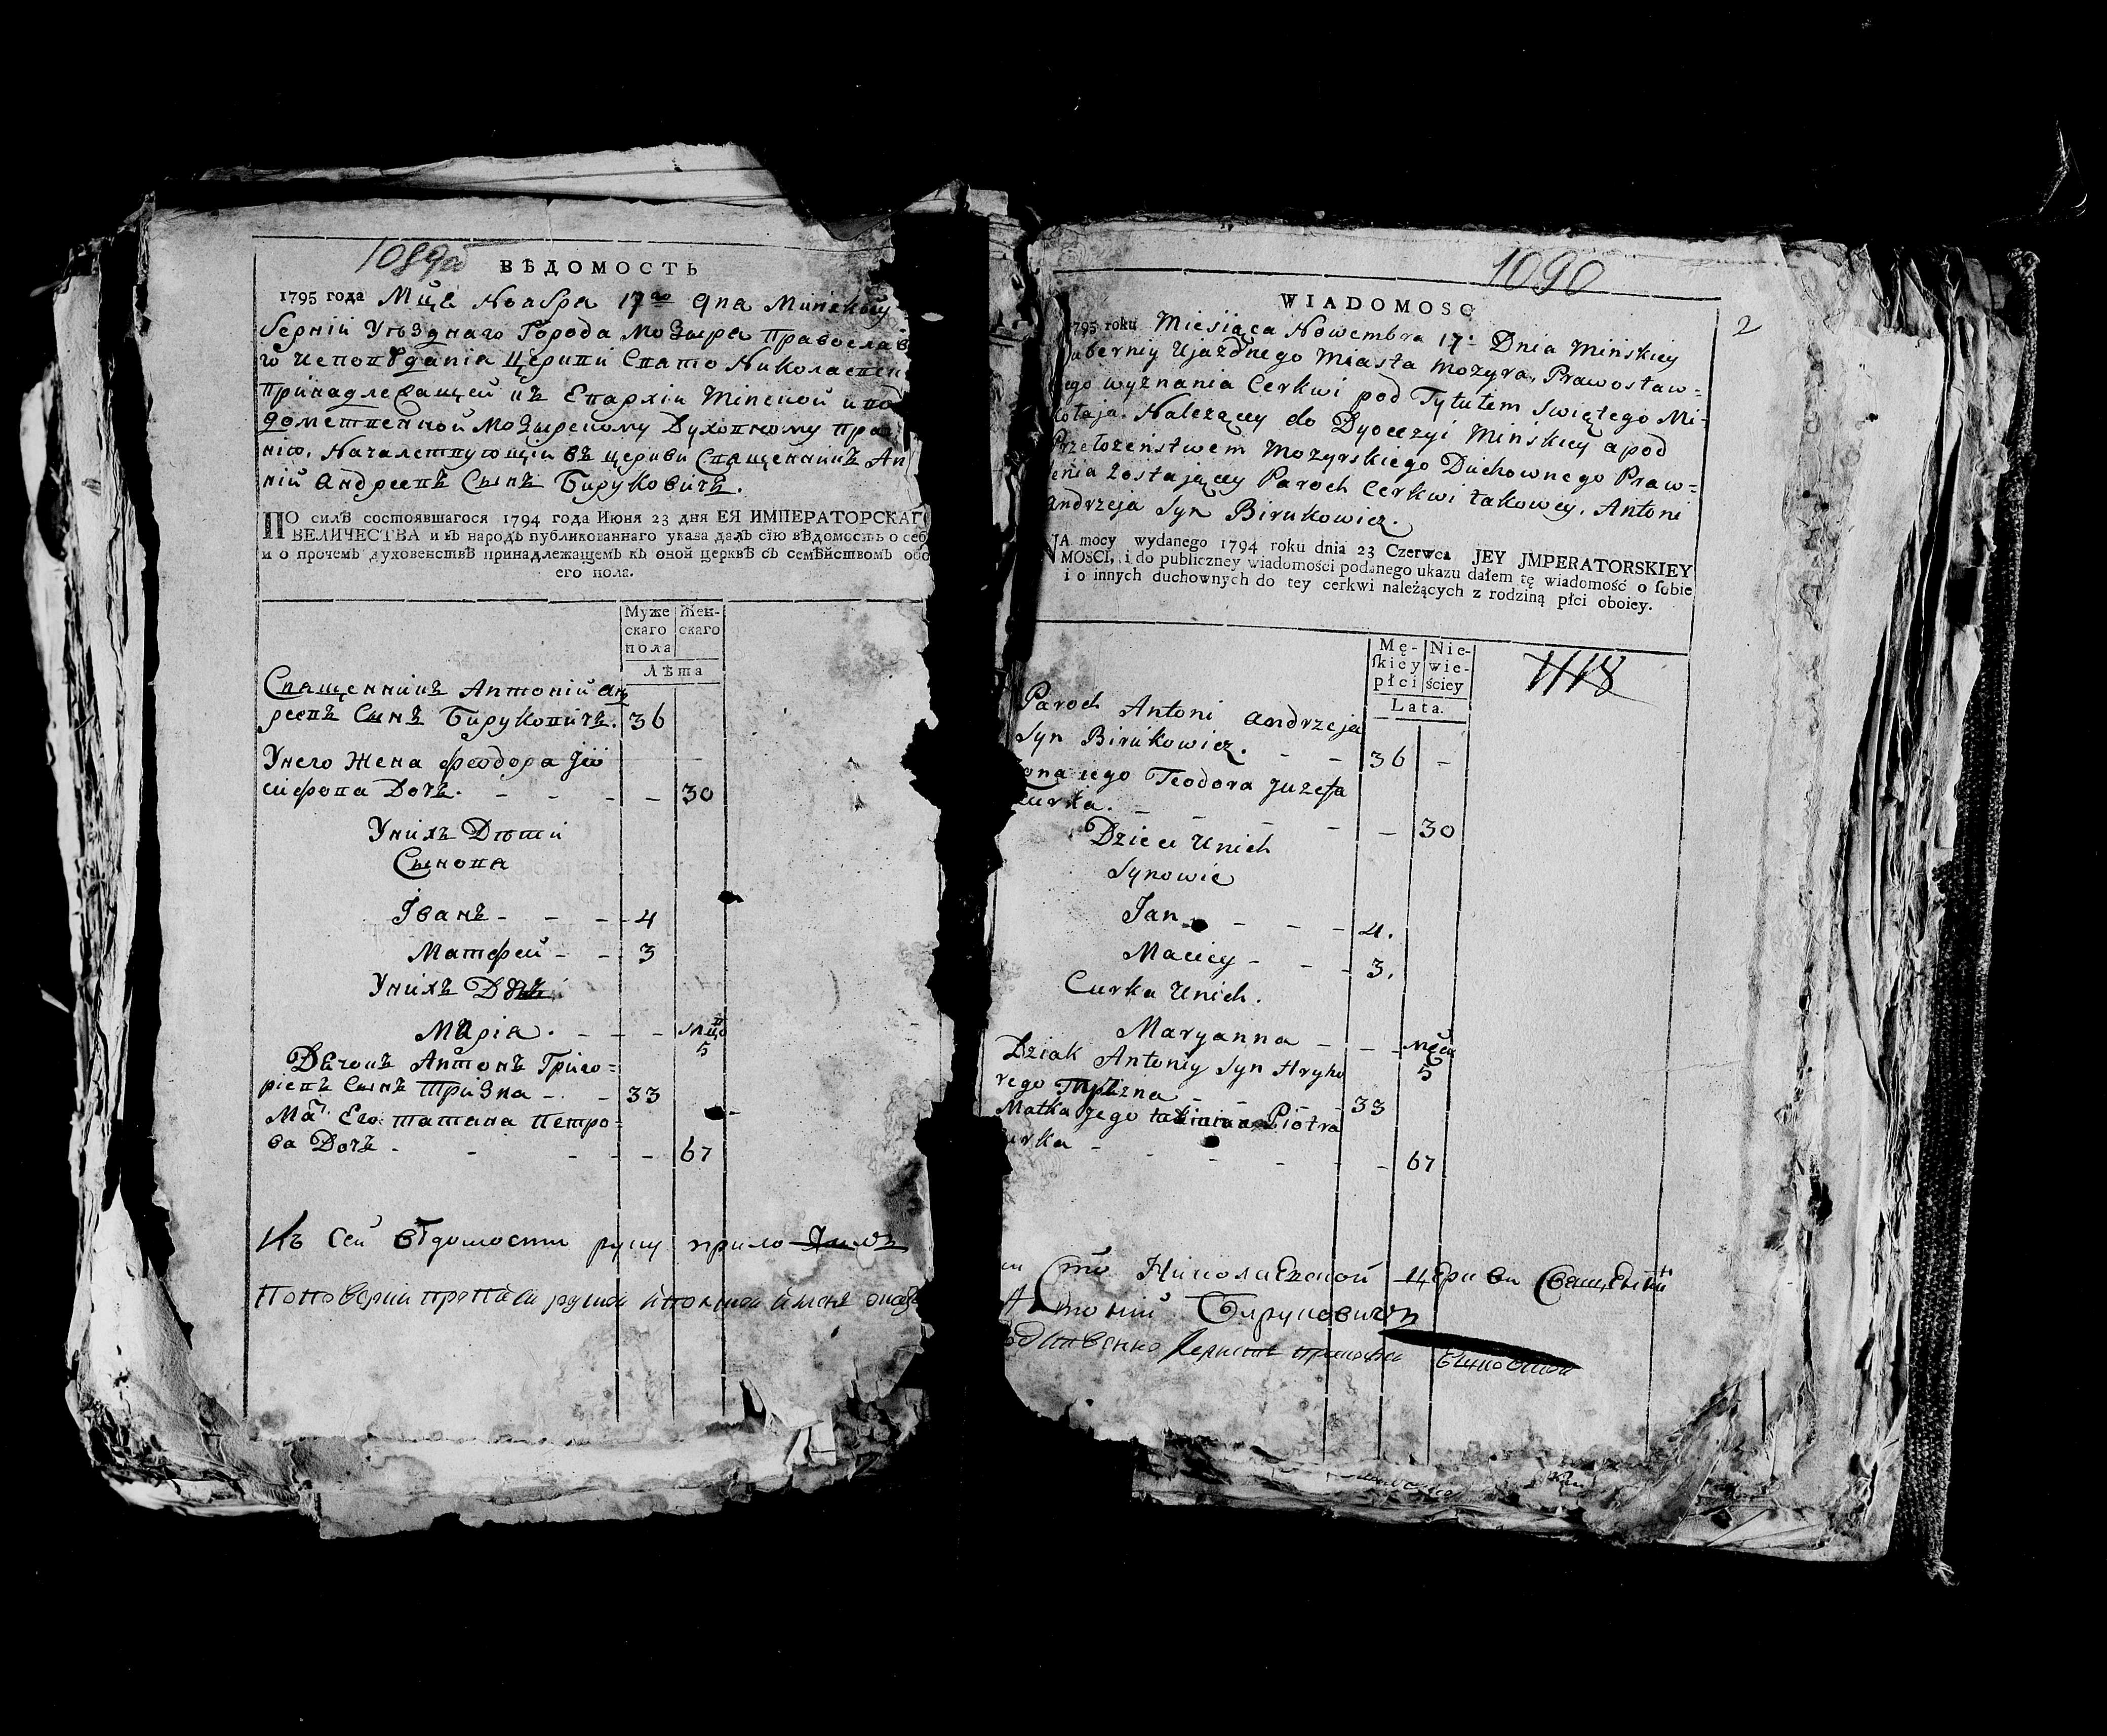 1089
ВѢДОМОСТЬ
1795 года Мца Ноября 17го дня Минской
берніи Уѣзднаго Города Мозыря Православ
го исповѣданія Церкви Свято Николаевск
принадлежащей къ Епархіи Минской и под
домственной Мозырскому Духовному Прав
нію, Началствующій въ церкви Священникъ Ан
ній Андреевъ Сынъ Бируковичъ.
ПО силѣ состоявшагося 1794 года Июня 23 дня ЕЯ ИМПЕРАТОРСКАГО
ВЕЛИЧЕСТВА и въ народъ публикованнаго указа далъ сію вѣдомость о себѣ
и о прочемъ духовенствѣ принадлежащемъ къ оной церквѣ съ семѣйствомъ обо
его пола.
Муже Жен-
скаго скаго
пола
Лѣта
Священникъ Антоній Анд
реевъ Сынъ Бируковичъ. 36
Унего Жена Феодора
сифова Дочъ. - - - - 30
Унихъ Дѣти
Сынова
Іванъ - - - 4
Матфей - - 3
Унихъ
Марія. - - - 5
Дячокъ Антонъ Григо-
ріевъ Сынъ Тризна - - 33
Мат Его Татіана Петро-
ва Дочъ - - - - 67
Къ сей вѣдомости руку приложилъ
1090
2
WIADOMOSC
1795 roku Miesiąca Nowembra 17: Dnia Mińskiey
uberniy Ujazdnego Miasta Mozyra, Prawosław=
ego wyznania Cerkwi pod Tytułem Swiętego Mi-
kołaja. Należącey do Dyecezyi Mińskiey a pod
Przełożeństwem Mozyrskiego Duchownego Praw=
lenia Zostającey Paroch Cerkwi takowey, Antoni
Andrzeja Syn Birukowicz.
NA mocy wydanego 1794 roku dnia 23 Czerwca JEY JMPERATORSKIEY
MOSCI, i do publiczney wiadomości podanego ukazu dałem tę wiadomość o ſobie
i o innych duchownych do tey cerkwi należących z rodziną płci oboiey.
Mę- Nie-
ſkiey wie-
płci ściey
Lata.
1118
Paroch Antoni Andrzeja
Syn Birukowicz. - - 36 -
ona jego Teodora Juzefa
curka. - - - - 30
Dzieci Unich
Synowie
Jan - - - 4.
Maciey - - - 3.
Curka Unich.
Maryanna - - - 5
Dziak Antoniy Syn Hryho
rego Tryzna - - - 33
Matka Jego Piotra
urka - - - - - 67
Сто Николаевской Церкви Священникъ
Антоній Бируковичъ